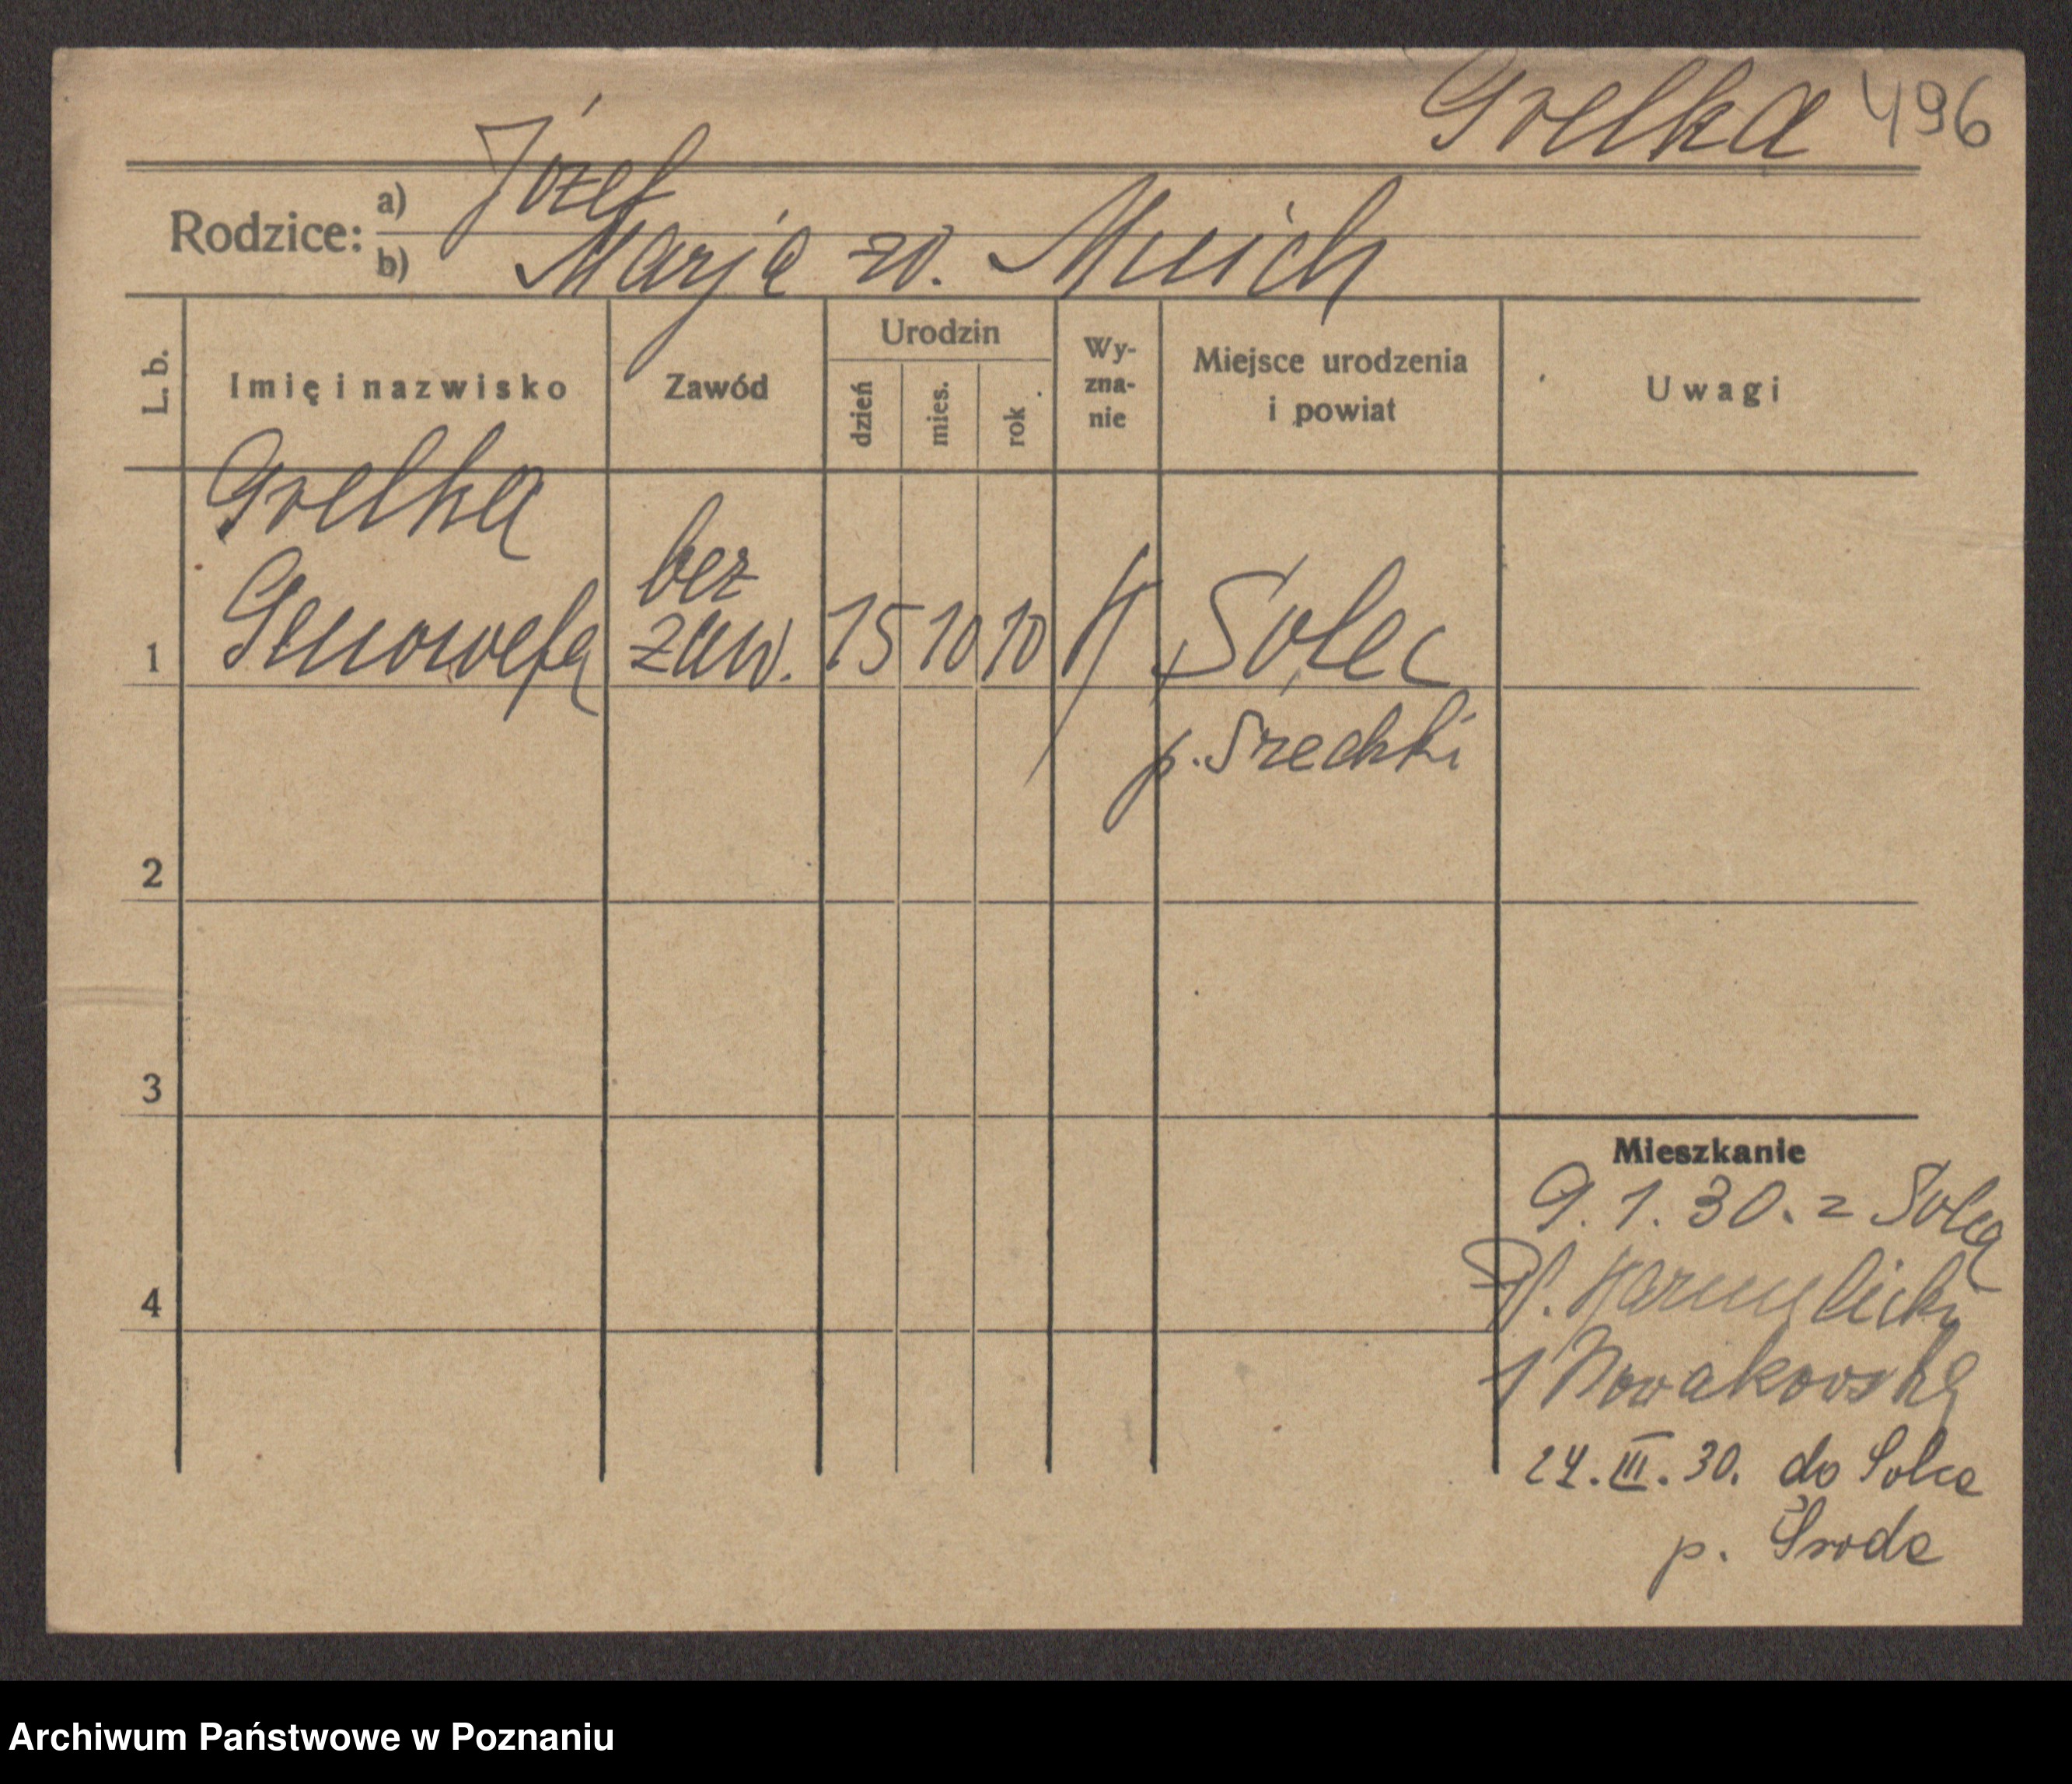 Grelka 496
Józef
Rodzice: a)
b) Marja zd. Muich
L. b.
Imię i nazwisko
Zawód
Urodzin
dzień
mies.
rok
Wy-
zna-
nie
Miejsce urodzenia
i powiat
Uwagi
Grelka
Genowefa
bez
zaw.
1
15 10 10
Solec
p. Średzki
2
3
4
Mieszkanie
9. 1. 30. z Solca
Nowakowska
24. III. 30. do Solca
p. Środa
Archiwum Państwowe w Poznaniu